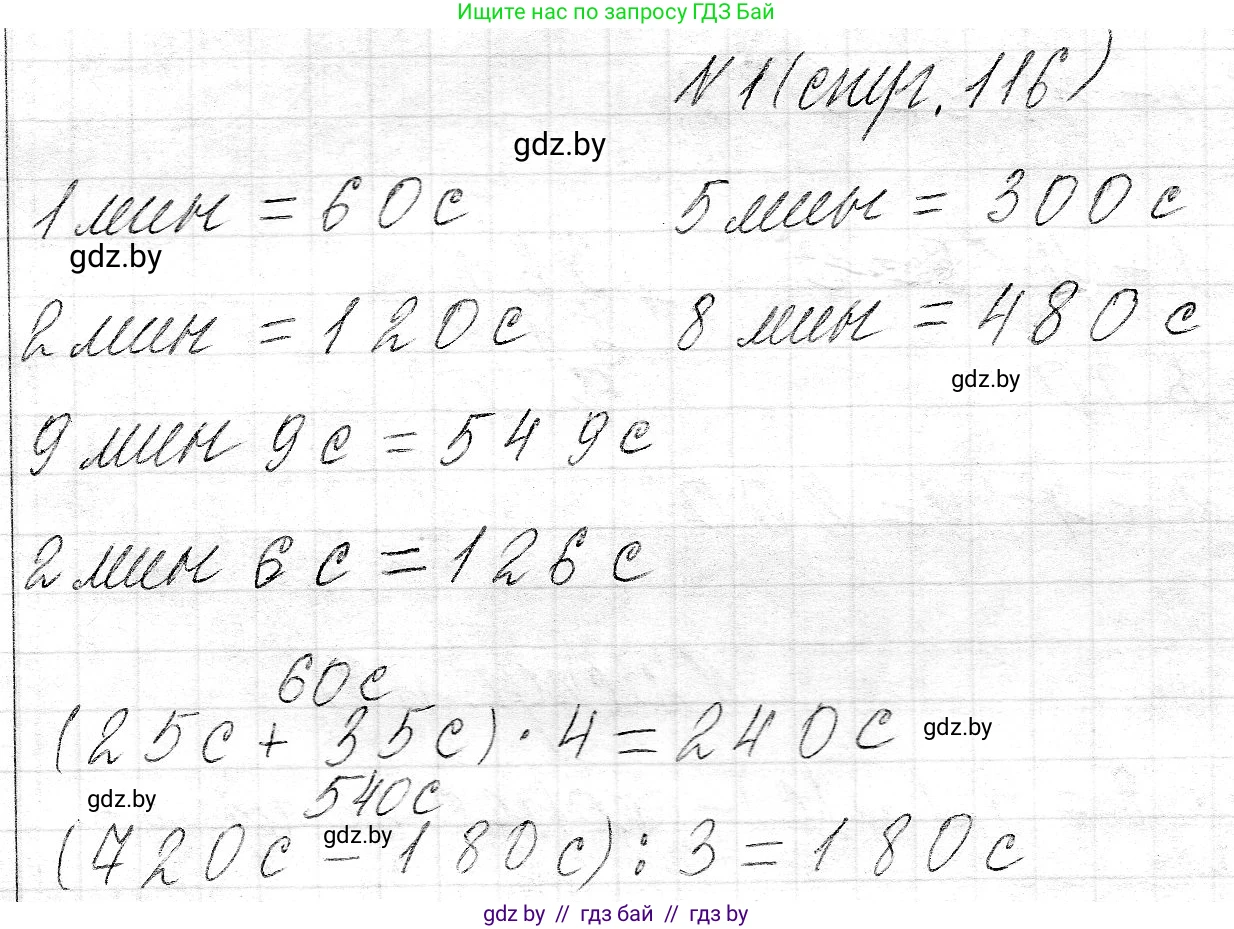 Ищите нас по запросу ГДЗ Бай
№1 (стр. 116)
gdz.by
1 мин = 60 с 5 мин = 300 с
gdz.by
2 мин = 120 с 8 мин = 480 с
gdz.by
9 мин 9 с = 549 с
2 мин 6 с = 126 с
60 с
(25 с + 35 с) · 4 = 240 с gdz.by
gdz.by 540 с
gdz.by
(720 с - 180 с) : 3 = 180 с
gdz by // гдз бай // гдз by